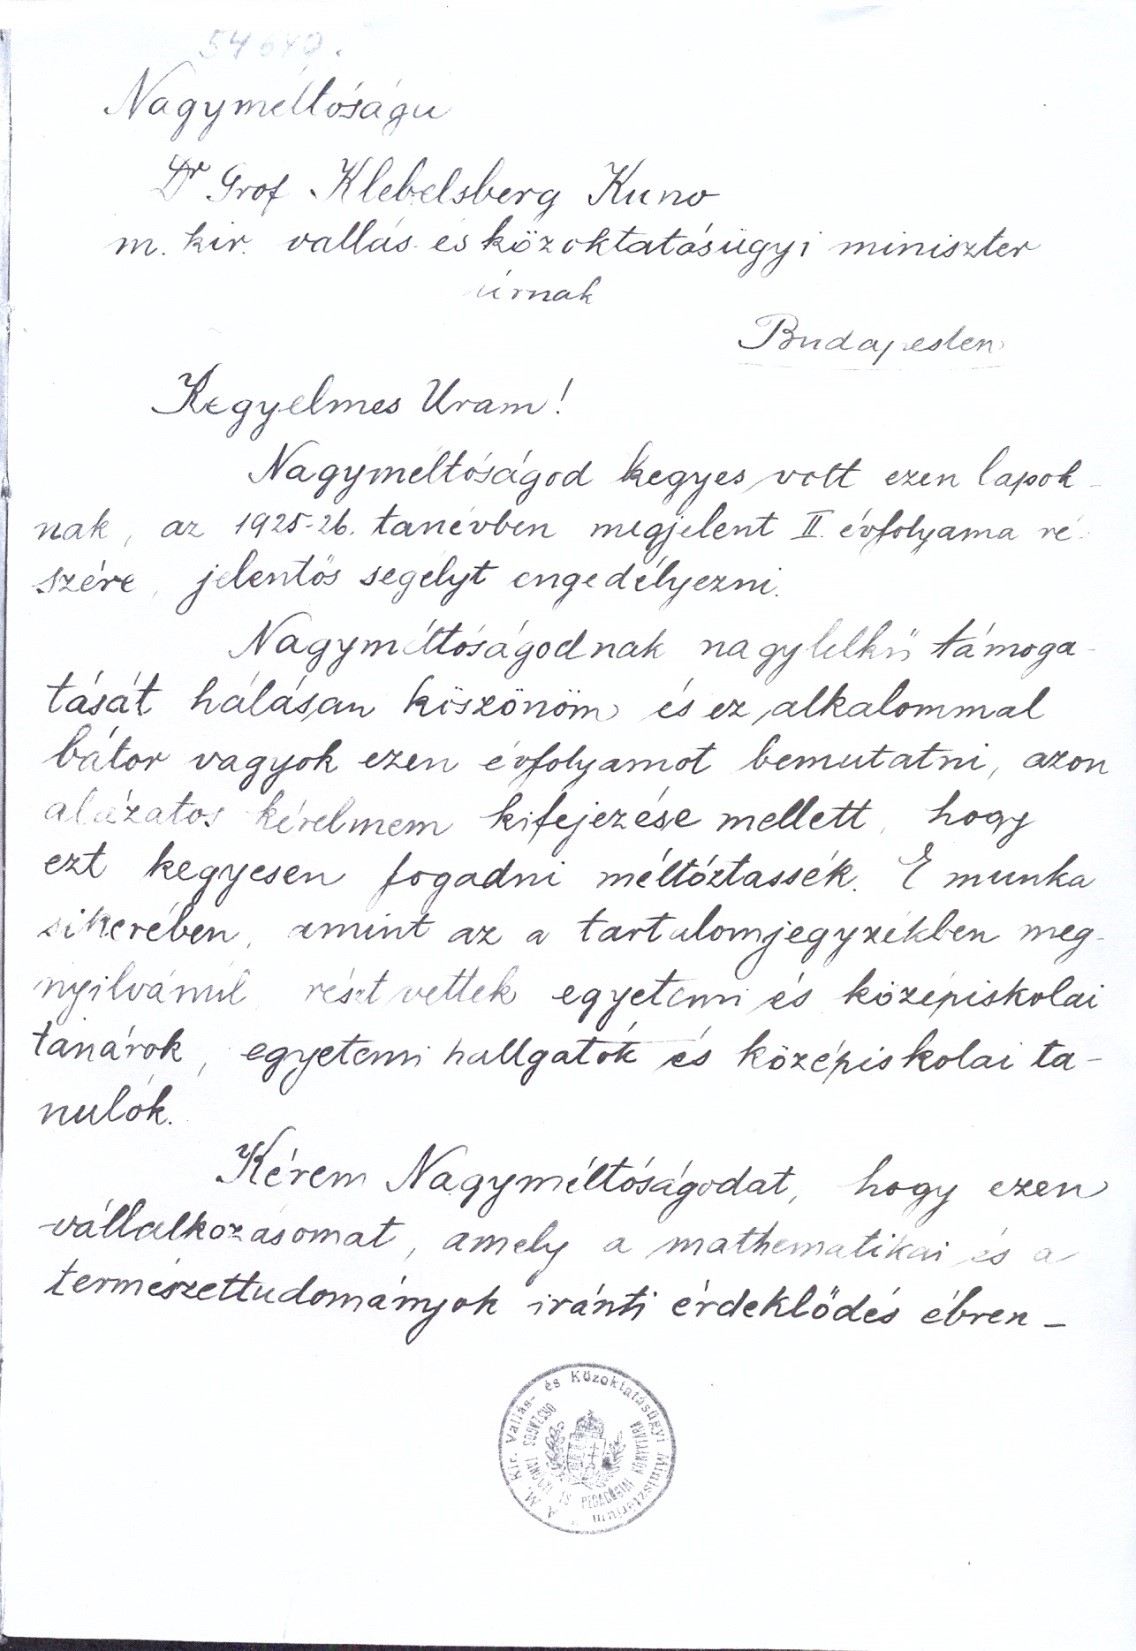 54640.
Nagyméltóságu
Dr Grof Klebelsberg Kuno
m. kir. vallás és közoktatásügyi miniszter
úrnak
Budapesten
Kegyelmes Uram!
Nagyméltóságod kegyes volt ezen lapok-
nak, az 1925-26. tanévben megjelent II. évfolyama ré-
szére, jelentős segélyt engedélyezni.
Nagyméltóságodnak nagylelkű támoga-
tását hálásan köszönöm és ez alkalommal
bátor vagyok ezen évfolyamot bemutatni, azon
alázatos kérelmem kifejezése mellett, hogy
ezt kegyesen fogadni méltóztassék. E munka
sikerében, amint az a tartalomjegyzékben meg-
nyilvánúl részt vettek egyetemi és középiskolai
tanárok, egyetemi hallgatók és középiskolai ta-
nulók.
Kérem Nagyméltóságodat, hogy ezen
vállalkozásomat, amely a mathematikai és a
természettudományok iránti érdeklődés ébren-
A M. Kir. Vallás- és Közoktatásügyi Minisztérium
ORSZÁGOS TANÜGYI ÉS PEDAGÓGIAI KÖNYVTÁRA